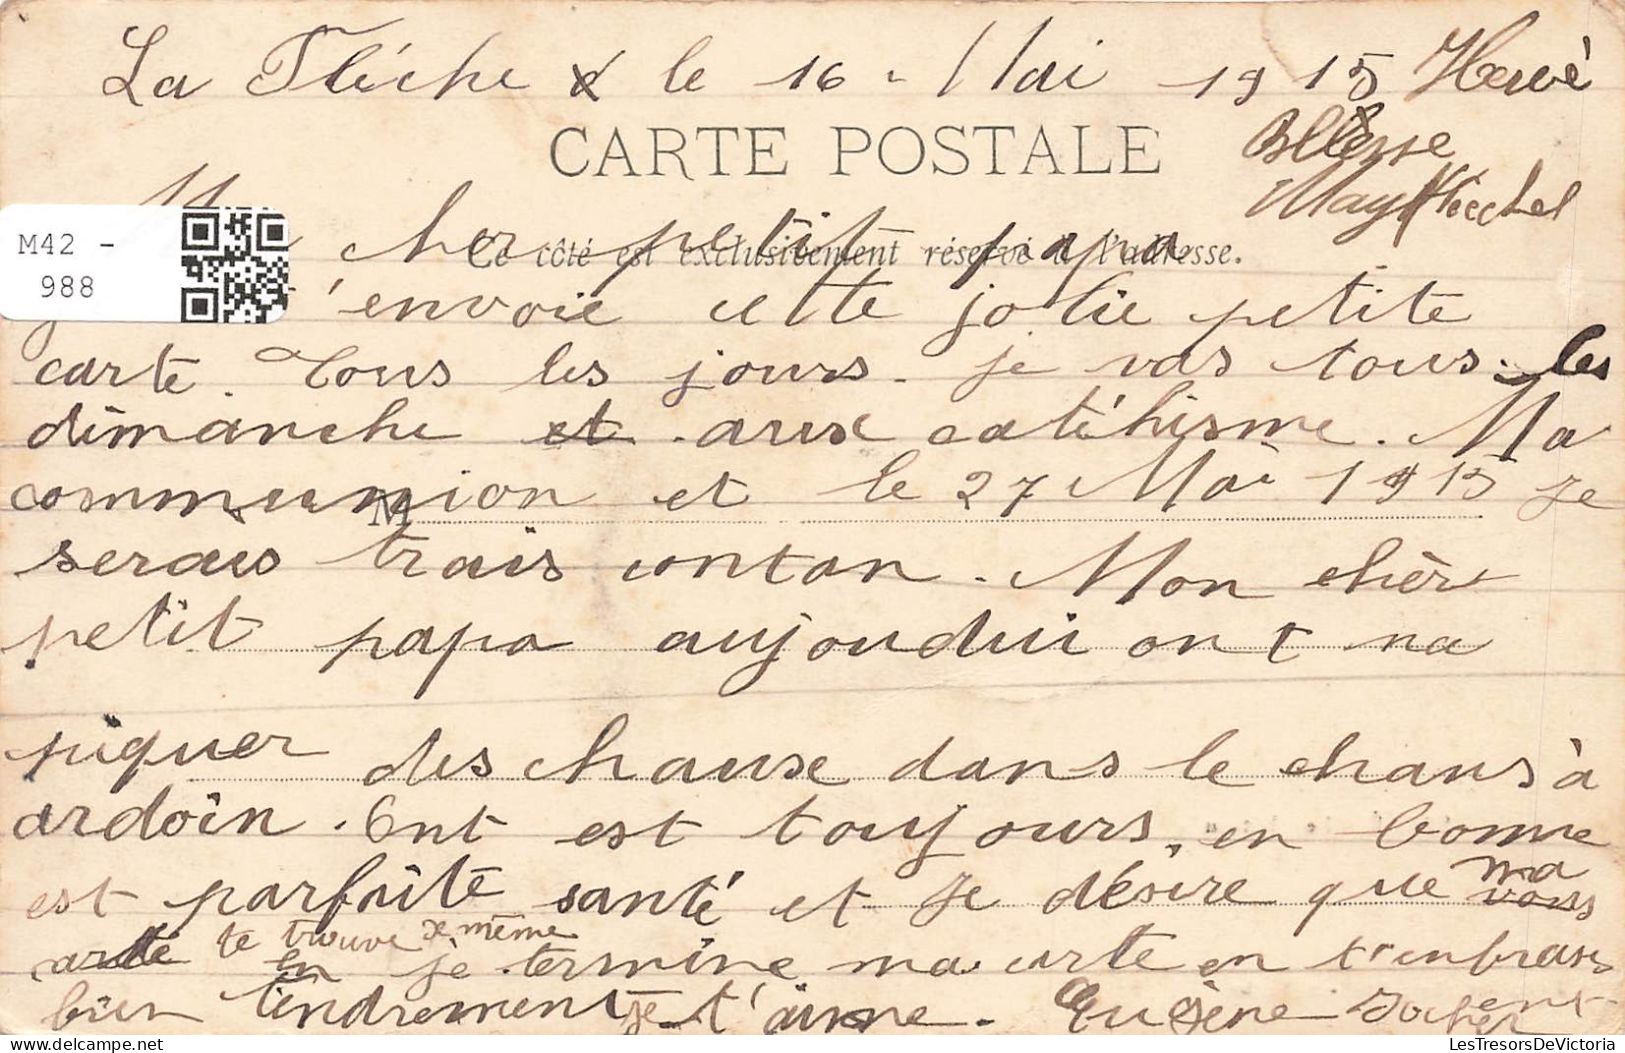 La Flèche le 16 - Mai 1915 Hervé
CARTE POSTALE
M42 -
988
cher petit papa
Ce côté est exclusivement réservé à l'adresse.
'envoie cette jolie petite
carte. Tous les jours. je vas tous les
dimanche et aux catéhisme. Ma
communion et le 27 Mai 1915 Je
M
serais trais contan. Mon chèr
petit papa aujourdui ont na
piquer des chause dans le chans à
ardoin. Ont est toujours en bonne
est parfaite santé et Je désire que ma
vous
carte te trouve de même
en je termine ma carte en t'enbrasent
bien tendrement Je t'aime. Eugène
LesTresorsDeVictoria